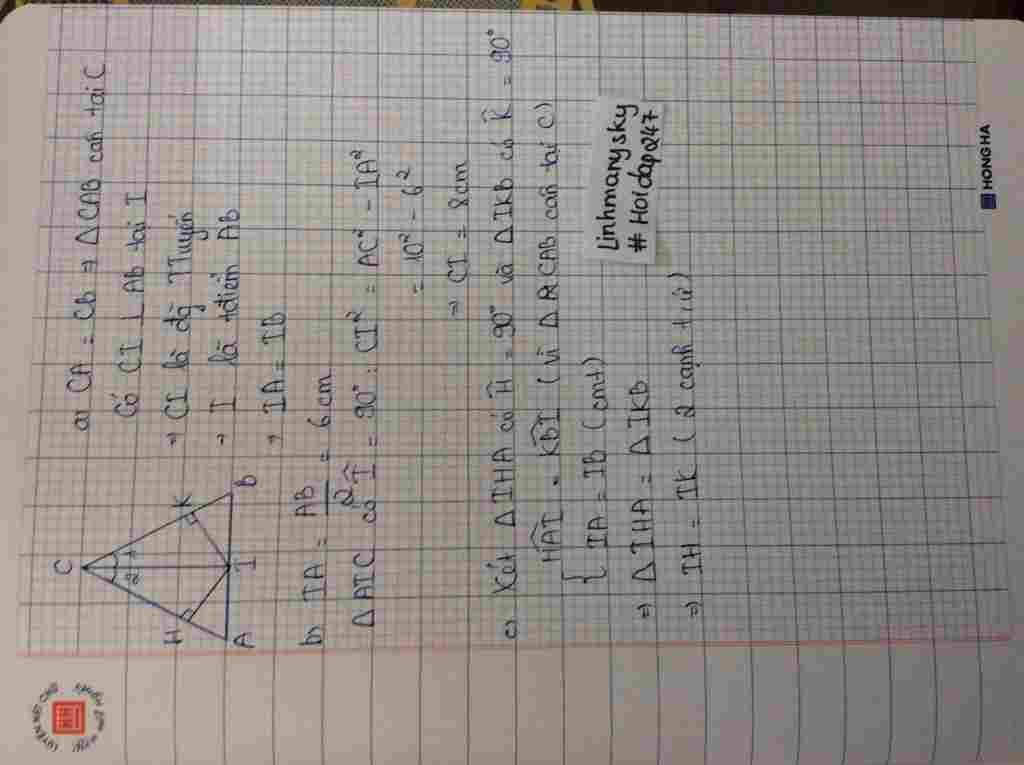 C
2 1
H
K
A
I
B
a) CA = CB ⇒ ΔCAB cân tại C
Có CI ⊥ AB tại I
⇒ CI là đg Tuyến
⇒ I là tđiểm AB
⇒ IA = IB
b) IA = AB/2 = 6cm
ΔAIC có Î = 90° : CI² = AC² - IA²
= 10² - 6²
⇒ CI = 8cm
c) Xét ΔIHA có Ĥ = 90° và ΔIKB có K̂ = 90°
HAI = KBI (vì Δ CAB cân tại C)
{ IA = IB (cmt)
⇒ ΔIHA = ΔIKB
⇒ IH = IK (2 cạnh t/ứ)
Linhmanysky
#Hoidap247
HONG HA